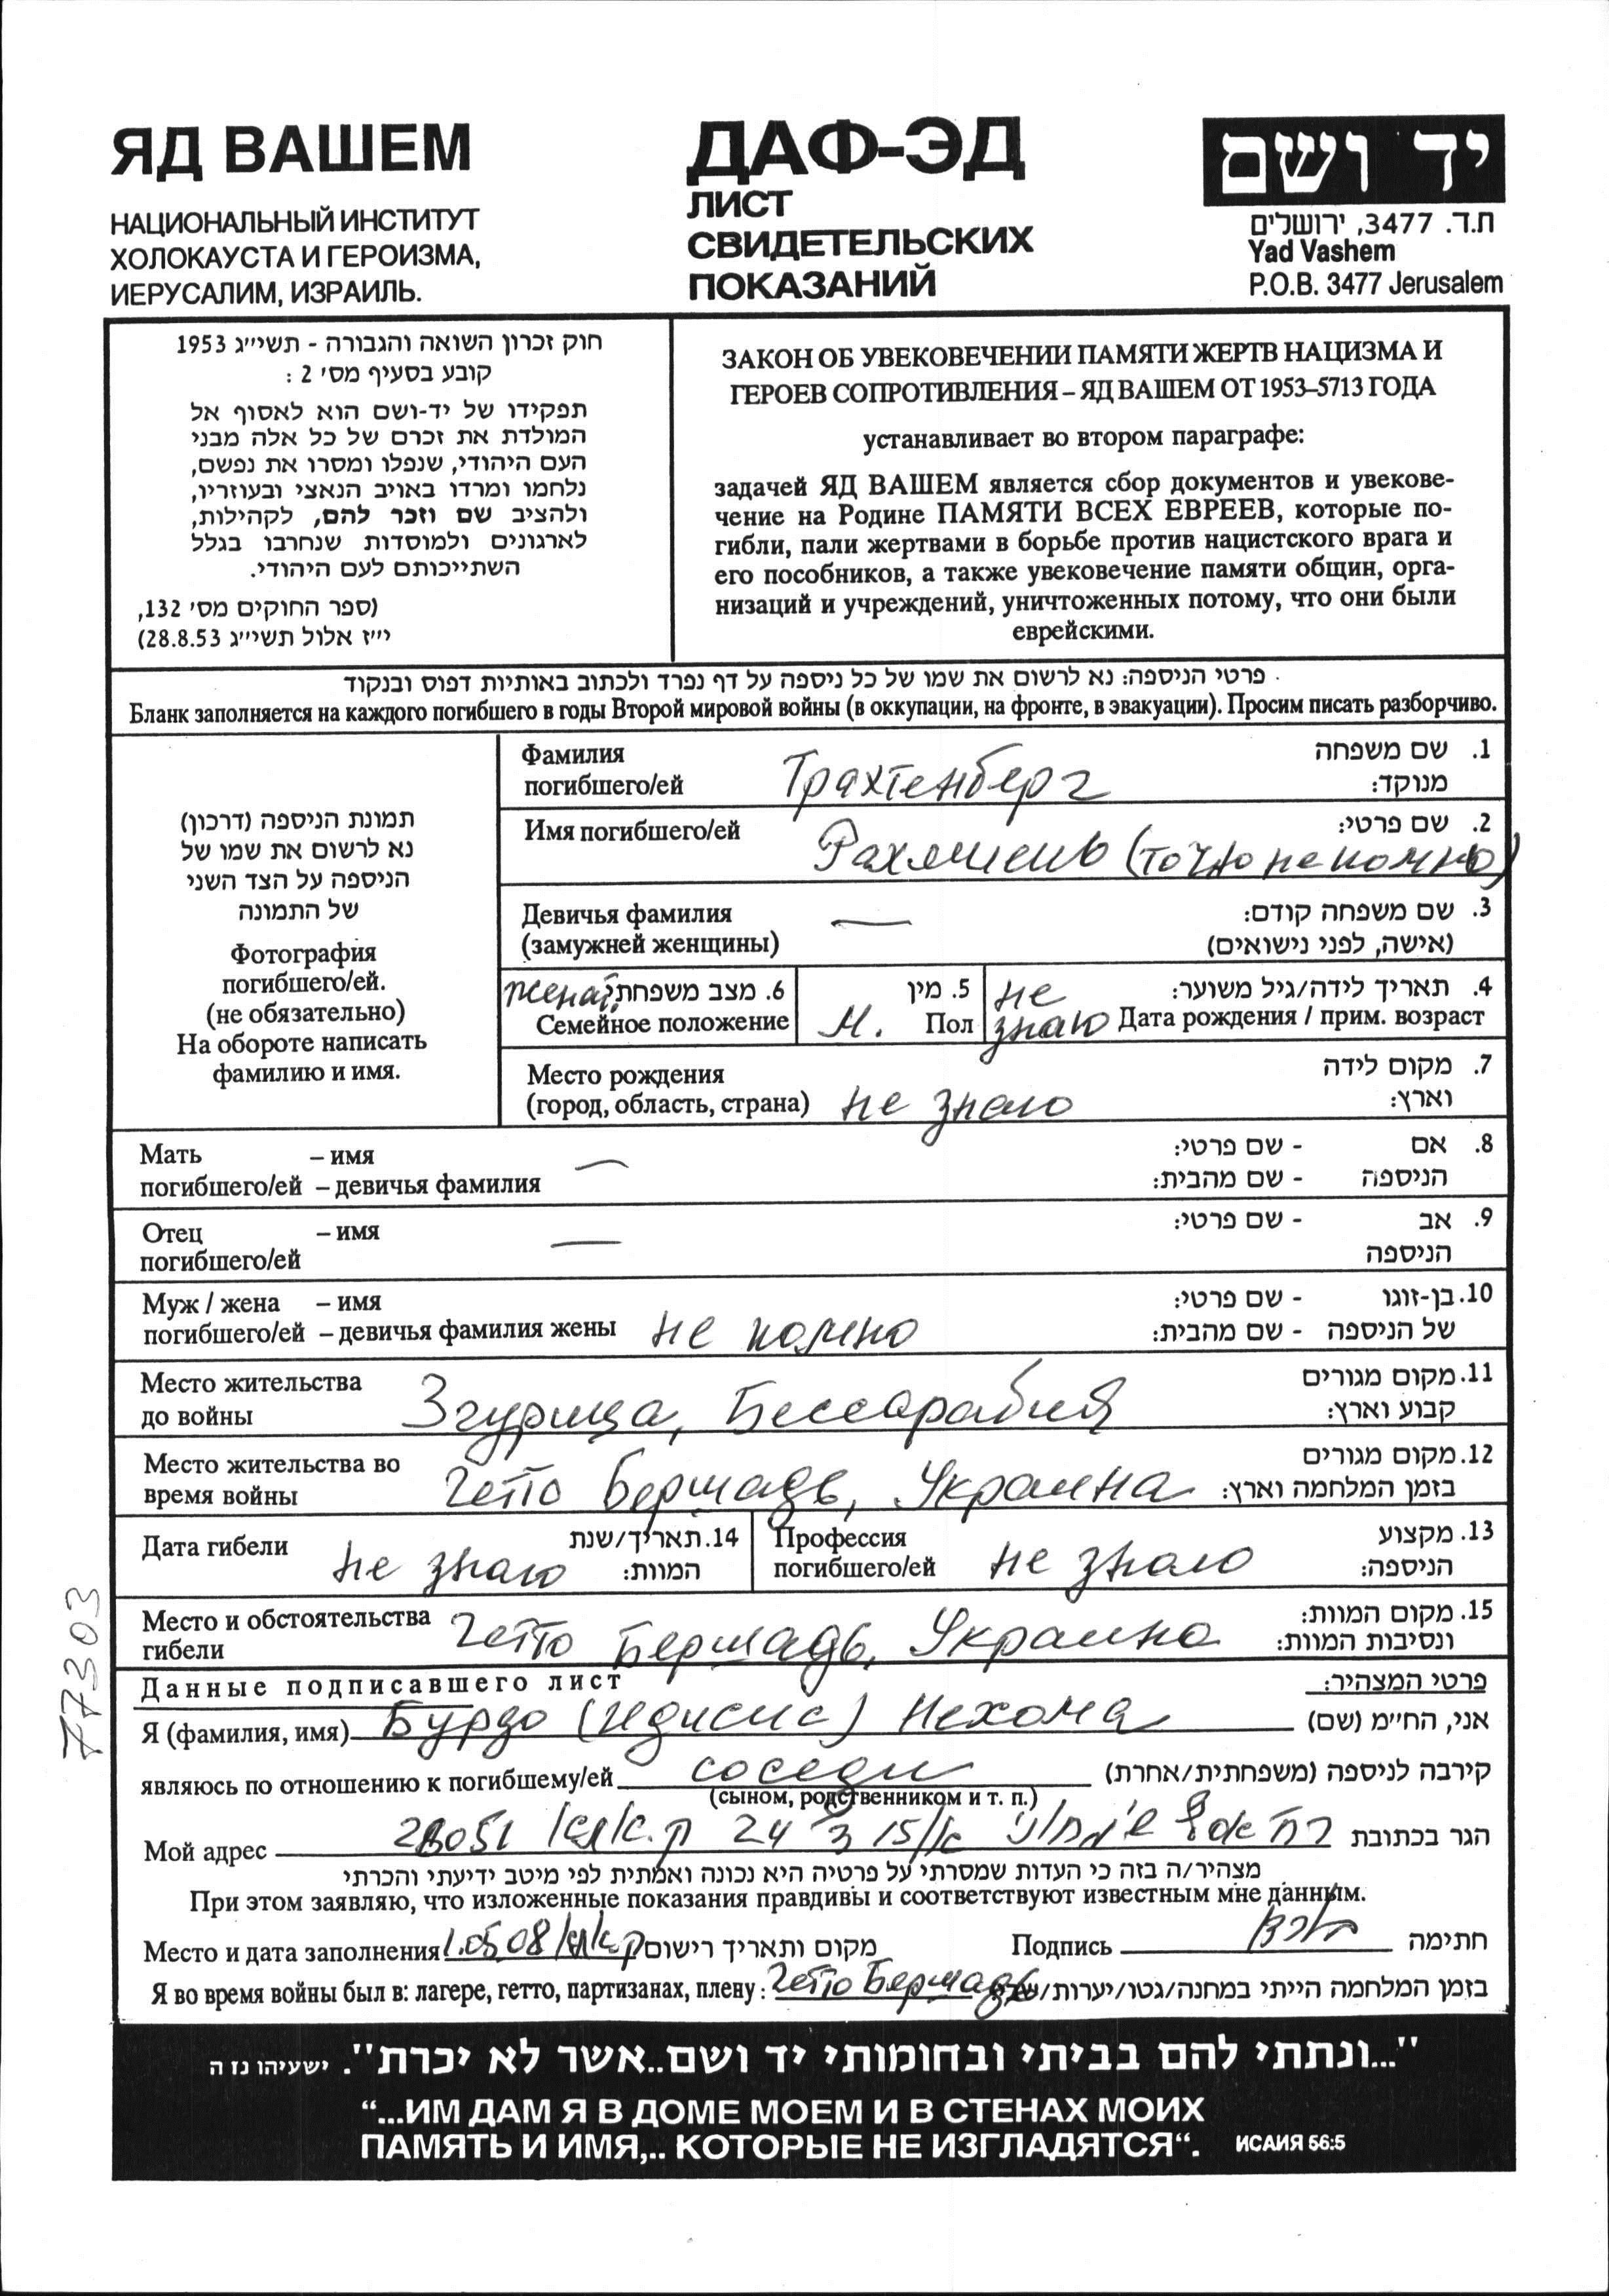 ЯД ВАШЕМ
НАЦИОНАЛЬНЫЙ ИНСТИТУТ
ХОЛОКАУСТА И ГЕРОИЗМА,
ИЕРУСАЛИМ, ИЗРАИЛЬ.
ДАФ-ЭД
ЛИСТ
СВИДЕТЕЛЬСКИХ
ПОКАЗАНИЙ
יד ושם
ת.ד. 3477, ירושלים
Yad Vashem
P.O.B. 3477 Jerusalem
חוק זכרון השואה והגבורה - תשי״ג 1953
קובע בסעיף מס׳ 2 :
תפקידו של יד-ושם הוא לאסוף אל
המולדת את זכרם של כל אלה מבני
העם היהודי, שנפלו ומסרו את נפשם,
נלחמו ומרדו באויב הנאצי ובעוזריו,
ולהציב שם וזכר להם, לקהילות,
לארגונים ולמוסדות שנחרבו בגלל
השתייכותם לעם היהודי.
(ספר החוקים מס׳ 132,
י״ז אלול תשי״ג 28.8.53)
ЗАКОН ОБ УВЕКОВЕЧЕНИИ ПАМЯТИ ЖЕРТВ НАЦИЗМА И
ГЕРОЕВ СОПРОТИВЛЕНИЯ – ЯД ВАШЕМ ОТ 1953–5713 ГОДА
устанавливает во втором параграфе:
задачей ЯД ВАШЕМ является сбор документов и увекове-
чение на Родине ПАМЯТИ ВСЕХ ЕВРЕЕВ, которые по-
гибли, пали жертвами в борьбе против нацистского врага и
его пособников, а также увековечение памяти общин, орга-
низаций и учреждений, уничтоженных потому, что они были
еврейскими.
פרטי הניספה: נא לרשום את שמו של כל ניספה על דף נפרד ולכתוב באותיות דפוס ובנקוד
Бланк заполняется на каждого погибшего в годы Второй мировой войны (в оккупации, на фронте, в эвакуации). Просим писать разборчиво.
תמונת הניספה (דרכון)
נא לרשום את שמו של
הניספה על הצד השני
של התמונה
Фотография
погибшего/ей.
(не обязательно)
На обороте написать
фамилию и имя.
Фамилия
погибшего/ей Трахтенберг
1. שם משפחה
מנוקד:
Имя погибшего/ей (точно не помню)
2. שם פרטי:
Девичья фамилия —
(замужней женщины)
3. שם משפחה קודם:
(אישה, לפני נישואים)
6. מצב משפחתי:
Семейное положение
5. מין
М. Пол
4. תאריך לידה/גיל משוער:
не знаю Дата рождения / прим. возраст
Место рождения
(город, область, страна) не знаю
7. מקום לידה
וארץ:
Мать – имя —
погибшего/ей – девичья фамилия
8. אם - שם פרטי:
הניספה - שם מהבית:
Отец – имя —
погибшего/ей
9. אב - שם פרטי:
הניספה
Муж / жена – имя
погибшего/ей – девичья фамилия жены не помню
10. בן-זוגו - שם פרטי:
של הניספה - שם מהבית:
Место жительства
до войны Згурица, Бессарабия
11. מקום מגורים
קבוע וארץ:
Место жительства во
время войны Гетто Бершадь, Украина
12. מקום מגורים
בזמן המלחמה וארץ:
Дата гибели не знаю
14. תאריך/שנת
המוות:
Профессия
погибшего/ей не знаю
13. מקצוע
הניספה:
Место и обстоятельства
гибели Гетто Бершадь, Украина
15. מקום המוות:
ונסיבות המוות:
Данные подписавшего лист
פרטי המצהיר:
Я (фамилия, имя) Бурдо Нехома אני, הח״מ (שם)
являюсь по отношению к погибшему/ей соседи קירבה לניספה (משפחתית/אחרת)
(сыном, родственником и т. п.)
Мой адрес הגר בכתובת
מצהיר/ה בזה כי העדות שמסרתי על פרטיה היא נכונה ואמתית לפי מיטב ידיעתי והכרתי.
При этом заявляю, что изложенные показания правдивы и соответствуют известным мне данным.
Место и дата заполнения 1.05.08 מקום ותאריך רישום
Подпись חתימה
Я во время войны был в: лагере, гетто, партизанах, плену: Гетто Бершадь בזמן המלחמה הייתי במחנה/גטו/יערות/
77303
"...ונתתי להם בביתי ובחומותי יד ושם..אשר לא יכרת". ישעיהו נז ה
“...ИМ ДАМ Я В ДОМЕ МОЕМ И В СТЕНАХ МОИХ
ПАМЯТЬ И ИМЯ,.. КОТОРЫЕ НЕ ИЗГЛАДЯТСЯ“. ИСАИЯ 56:5